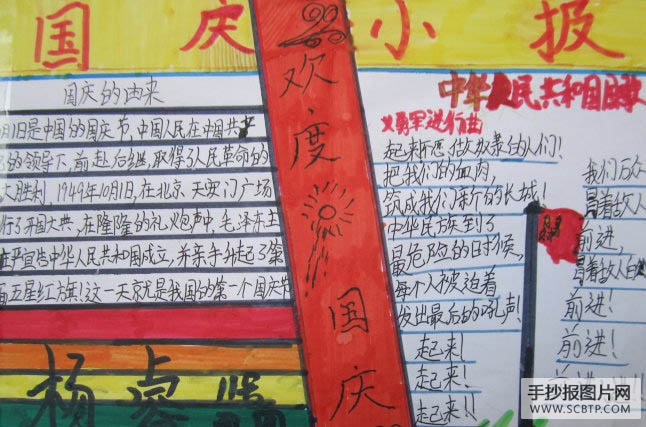 国庆小报
国庆的由来
月1日是中国的国庆节,中国人民在中国共
的领导下,前赴后继,取得了人民革命的
大胜利.1949年10月1日,在北京天安门广场
行了开国大典,在隆隆的礼炮声中,毛泽东主
庄严宣告中华人民共和国成立,并亲手升起了第
面五星红旗!这一天就是我国的第一个国庆节
杨睿
欢度国庆
中华人民共和国国歌
义勇军进行曲
起来!不愿做奴隶的人们!
把我们的血肉,
筑成我们新的长城!
中华民族到了
最危险的时候,
每个人被迫着
发出最后的吼声!
起来!
起来!
起来!!
我们万众
冒着敌人
前进,
冒着敌人的
前进!
前进!
手抄报图片网
WWW.SCBTP.COM